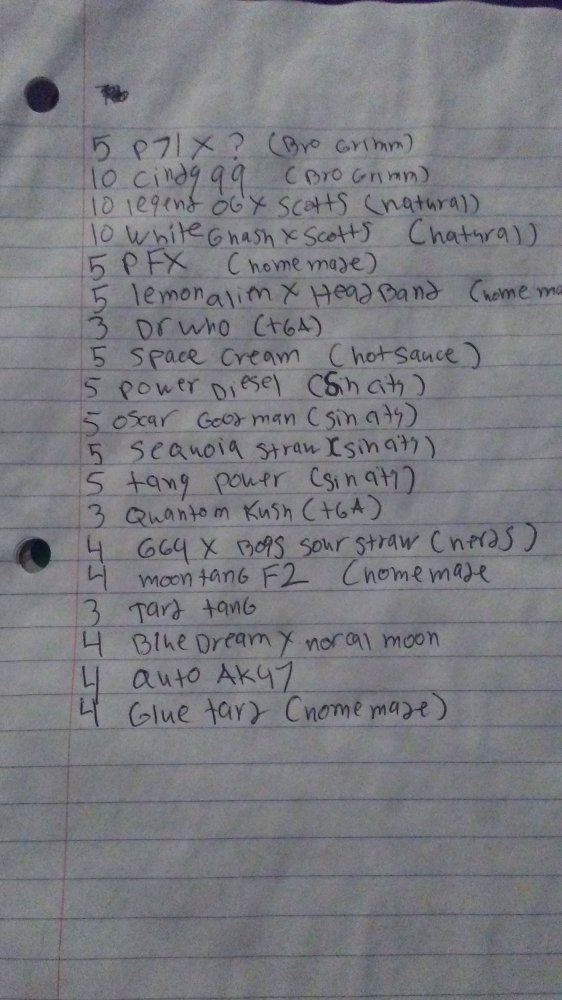 5 P71 X ? (Bro Grimm)
10 Cindy 99 (Bro Grimm)
10 legend OG X Scotts (natural)
10 White Gnash X Scotts (natural)
5 PFX (home made)
5 lemon alien X Head Band (home ma
3 Dr Who (TGA)
5 Space Cream (hot sauce)
5 Power Diesel (Sin city)
5 Oscar Goodman (sin city)
5 Sequoia Straw (sin city)
5 tang power (sin city)
3 Quantom Kush (TGA)
4 GG4 X Bogs sour straw (nerds)
4 moon tang F2 (home made
3 Tard tang
4 Blue Dream X norcal moon
4 auto AK47
4 Glue tard (home made)